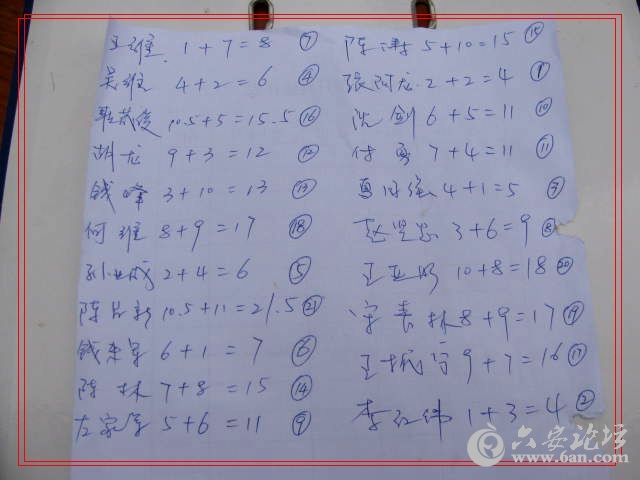 王雄 1+7=8 ⑦ 陈津 5+10=15 ⑮
吴雄 4+2=6 ④ 张阿龙 2+2=4 ①
10.5+5=15.5 ⑯ 沈剑 6+5=11 ⑩
胡龙 9+3=12 ⑫ 付勇 7+4=11 ⑪
钱峰 3+10=13 ⑬ 4+1=5 ③
何雄 8+9=17 ⑱ 赵坚忠 3+6=9 ⑧
2+4=6 ⑤ 王亚明 10+8=18 ⑳
陈品新 10.5+11=21.5 ㉑ 林 8+9=17 ⑲
钱荣军 6+1=7 ⑥ 王城 9+7=16 ⑰
陈林 7+8=15 ⑭ 李红伟 1+3=4 ②
左家军 5+6=11 ⑨
六安论坛
www.6an.com